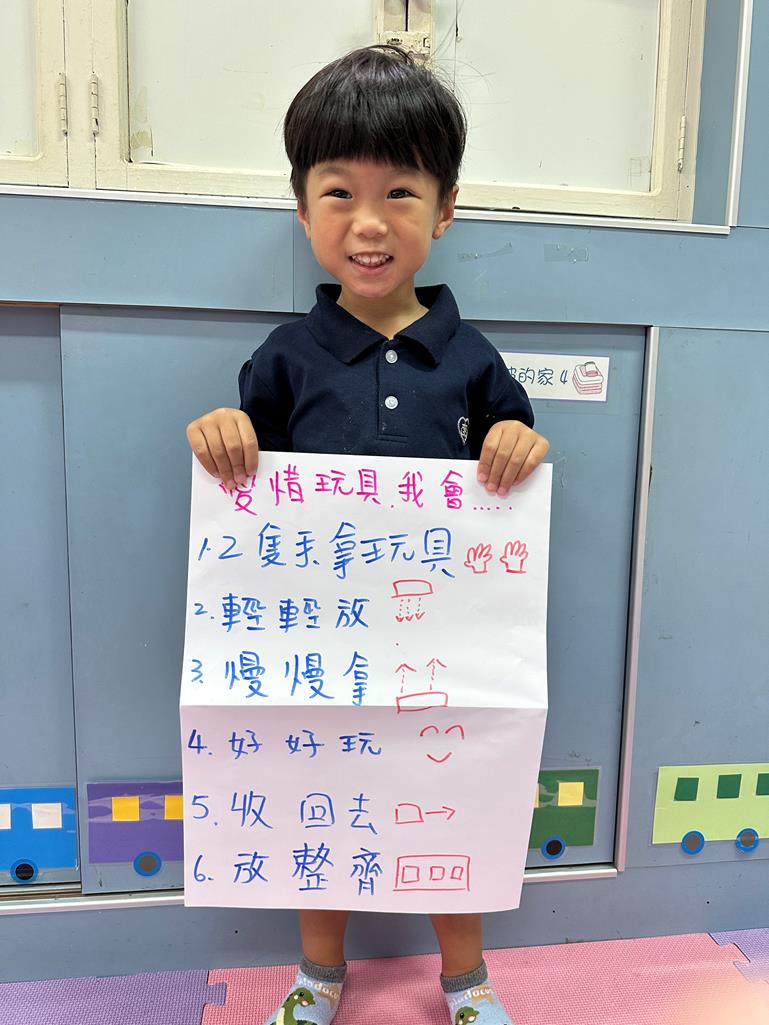 的家 4
愛惜玩具,我會.....
1.2隻手拿玩具
2.輕輕放
3.慢慢拿
4.好好玩
5.收回去
6.放整齊